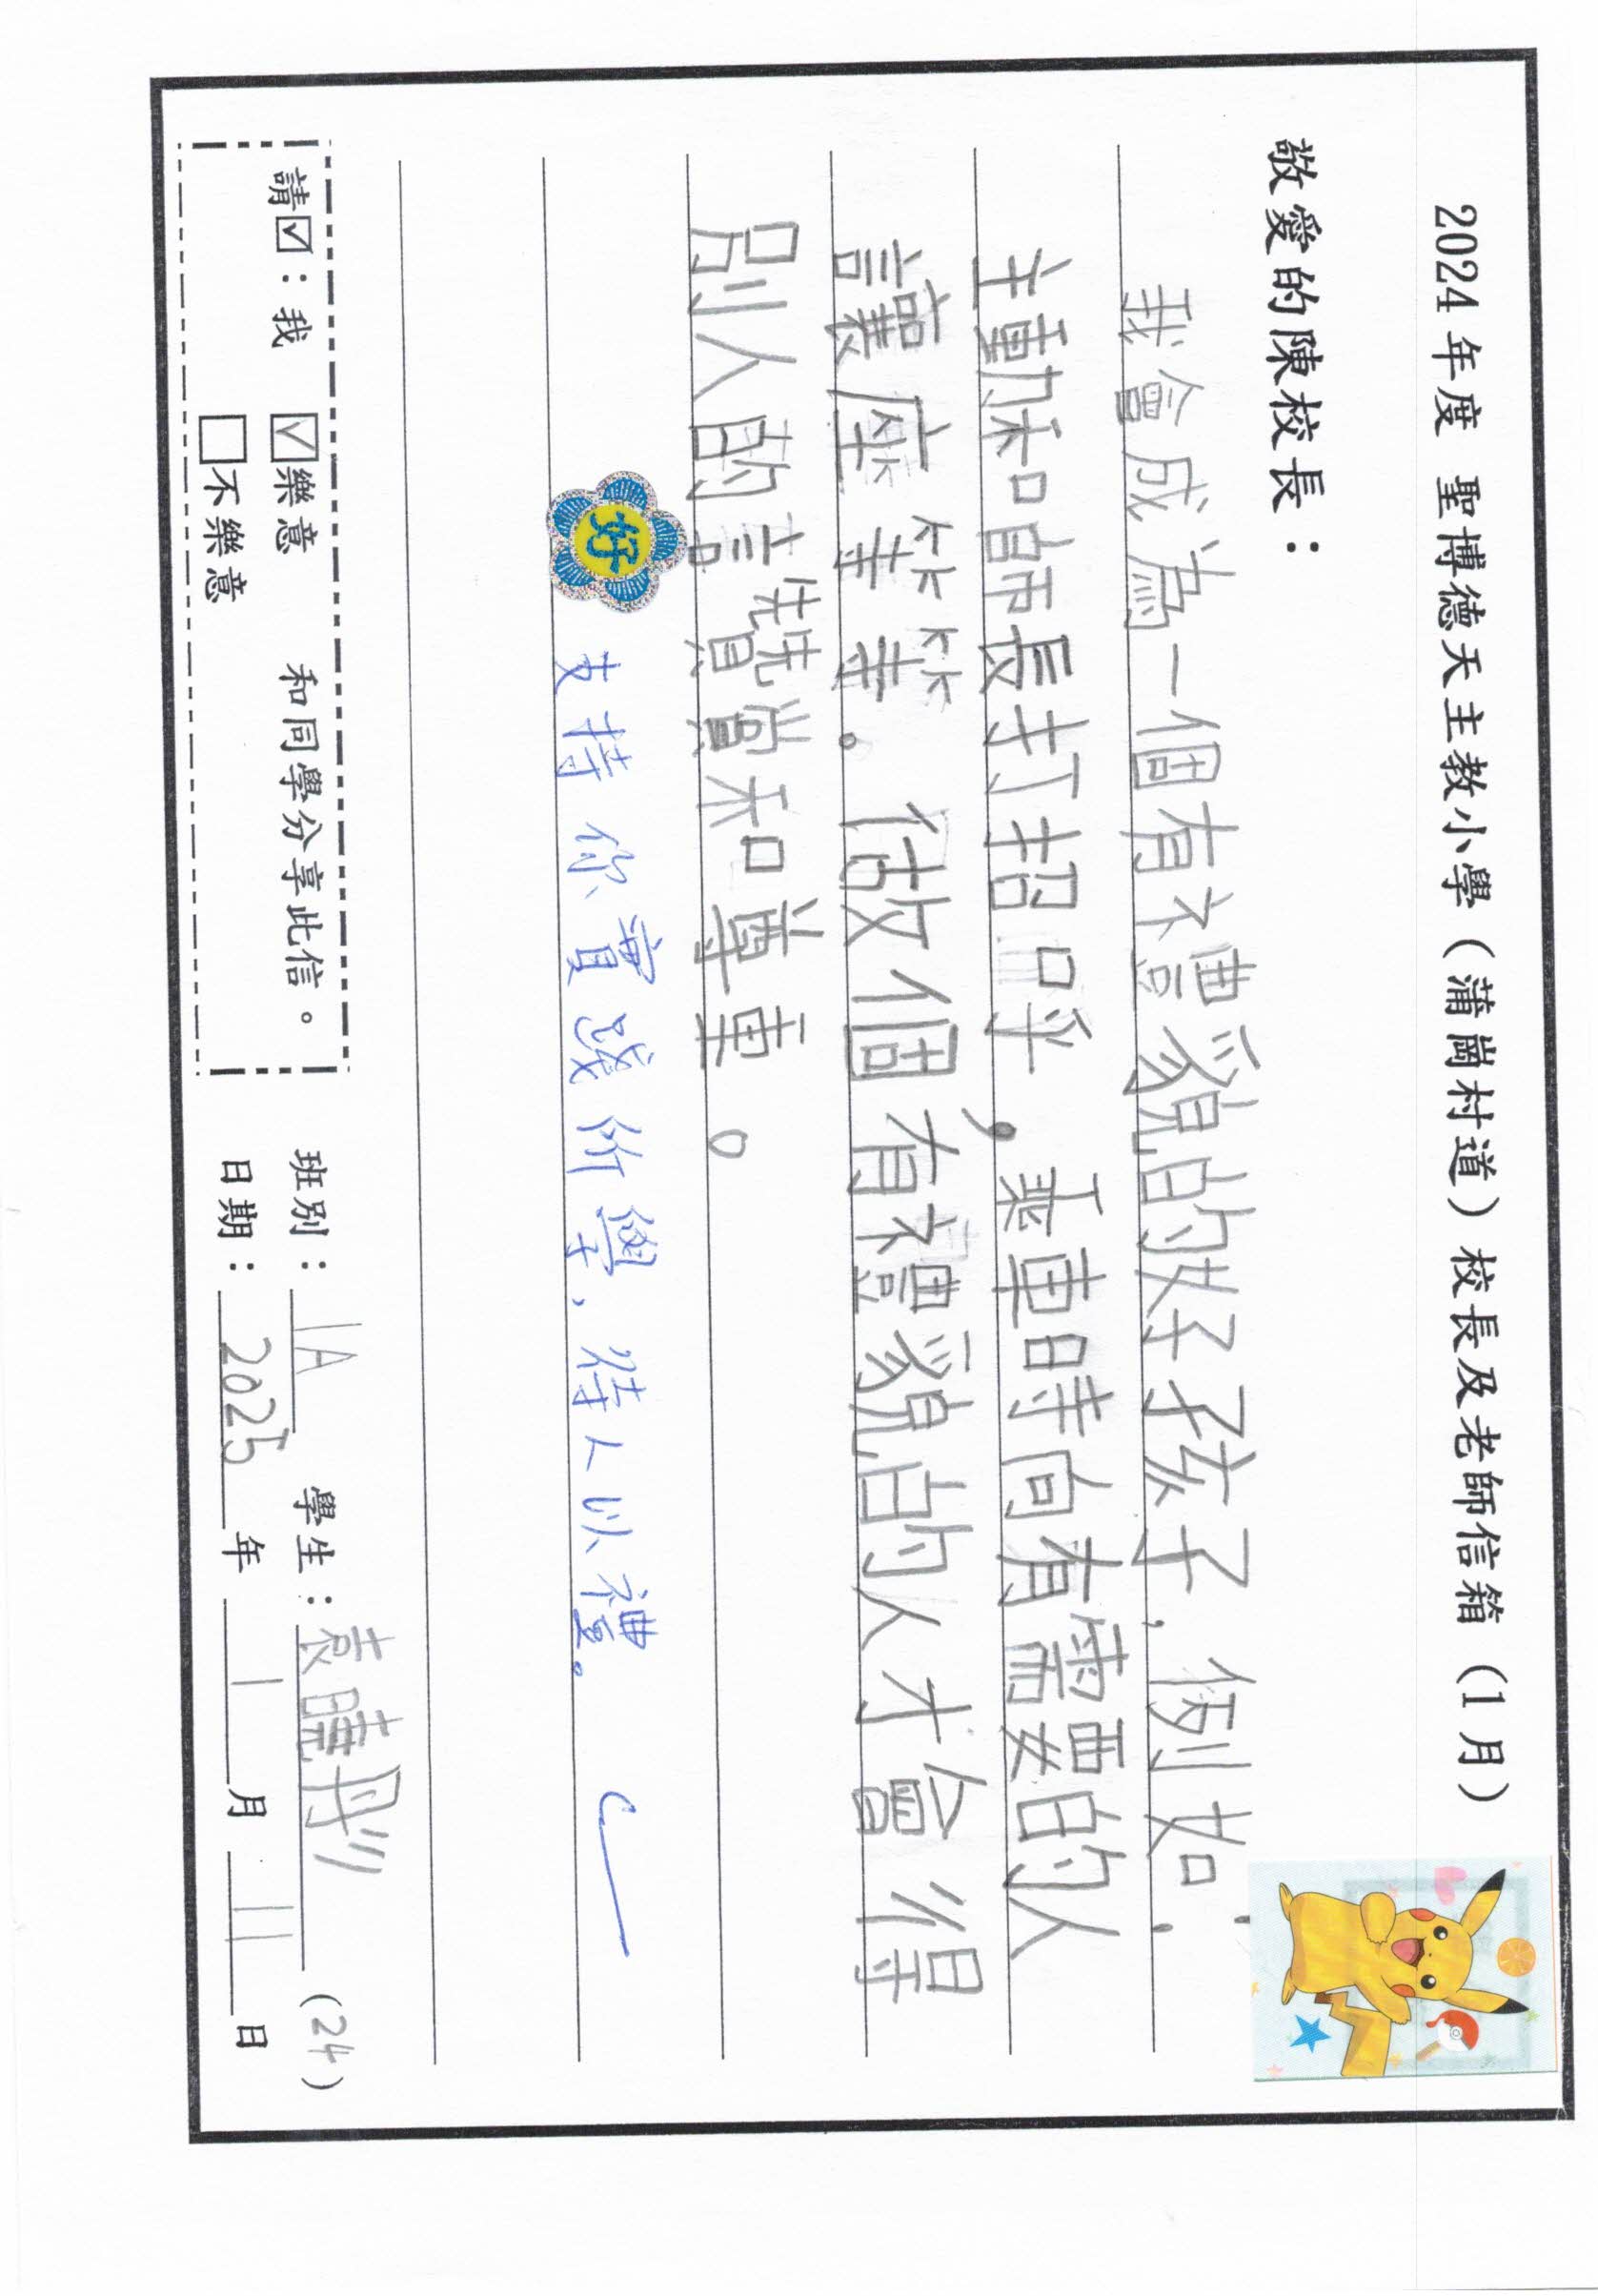 2024年度 聖博德天主教小學（蒲崗村道）校長及老師信箱（1月）
敬愛的陳校長：
我會成為一個有禮貌的好孩子,例如:
主動和師長打招呼，乘車時向有需要的人
讓座等等。估做個有禮貌的人才會得
別人的讚賞和尊重。
好
支持你實踐所學,待人以禮。
請☑：我 ☑樂意 和同學分享此信。
□不樂意
班別：1A 學生：袁曉彤 (24)
日期：2025年1月11日